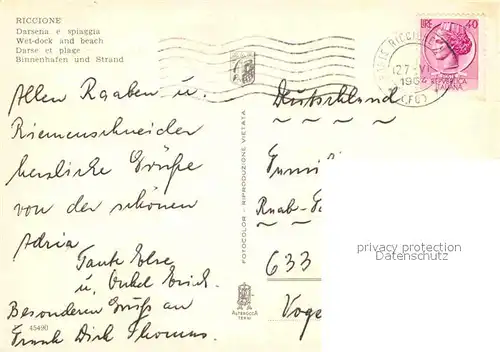 RICCIONE
Darsena e spiaggia
Wet-dock and beach
Darse et plage
Binnenhafen und Strand
Allen Raaben u.
Riemenschneider
herzliche Grüße
von der schönen
Adria
Tante Else
u. Onkel Erich.
Besonderen Gruß an
Frank Dirk Thomas.
45490
FOTOCOLOR - RIPRODUZIONE VIETATA
ALTEROCCA
TERNI
LIRE 40
POSTE
REPUBBLICA
ITALIANA
RICCIONE
1964
(FO)
Deutschland
Raab-
633
privacy protection
Datenschutz